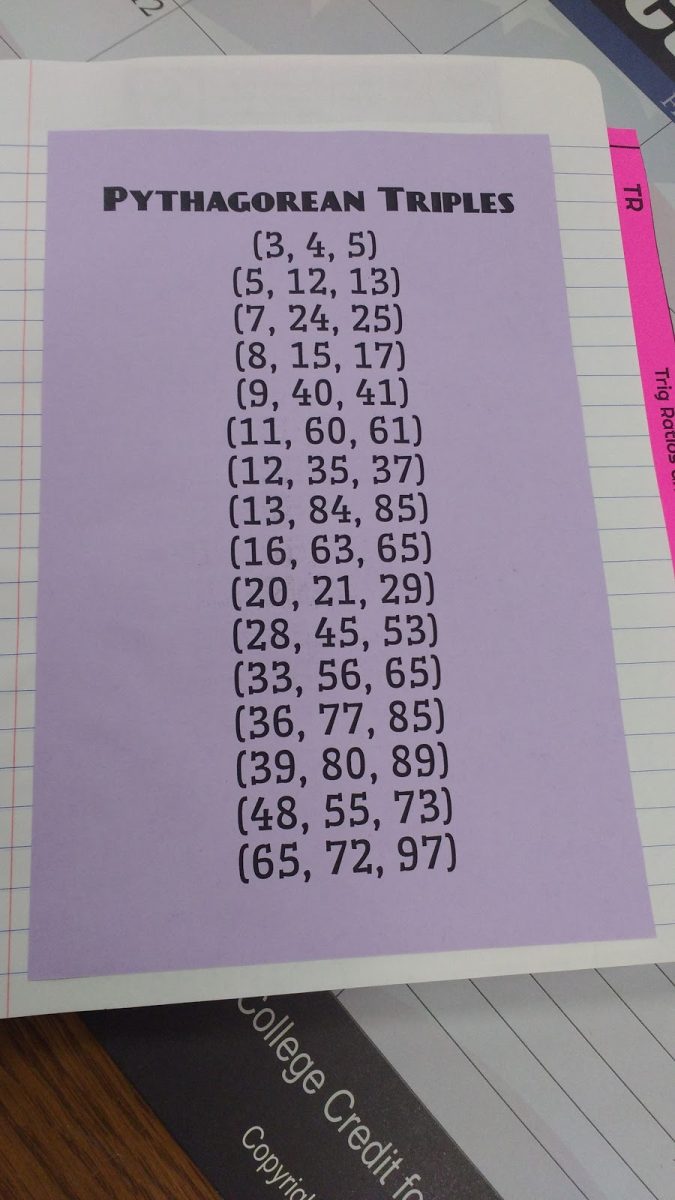 12
PYTHAGOREAN TRIPLES
(3, 4, 5)
(5, 12, 13)
(7, 24, 25)
(8, 15, 17)
(9, 40, 41)
(11, 60, 61)
(12, 35, 37)
(13, 84, 85)
(16, 63, 65)
(20, 21, 29)
(28, 45, 53)
(33, 56, 65)
(36, 77, 85)
(39, 80, 89)
(48, 55, 73)
(65, 72, 97)
TR
Trig Ratios
College Credit fo
Copyrig